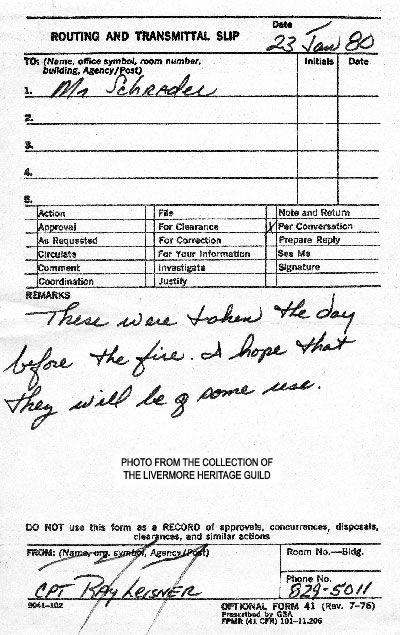 Date
ROUTING AND TRANSMITTAL SLIP
23 Jan 80
TO: (Name, office symbol, room number, building, Agency/Post)
Initials Date
1. Mr Schrader
2.
3.
4.
5.
Action File Note and Return
Approval For Clearance X Per Conversation
As Requested For Correction Prepare Reply
Circulate For Your Information See Me
Comment Investigate Signature
Coordination Justify
REMARKS
These were taken the day
before the fire. I hope that
they will be of some use.
PHOTO FROM THE COLLECTION OF
THE LIVERMORE HERITAGE GUILD
DO NOT use this form as a RECORD of approvals, concurrences, disposals,
clearances, and similar actions
FROM: (Name, org. symbol, Agency/Post) Room No.—Bldg.
Phone No.
CPT RAY LEISNER 829-5011
5041-102 OPTIONAL FORM 41 (Rev. 7-76)
Prescribed by GSA
FPMR (41 CFR) 101-11.206